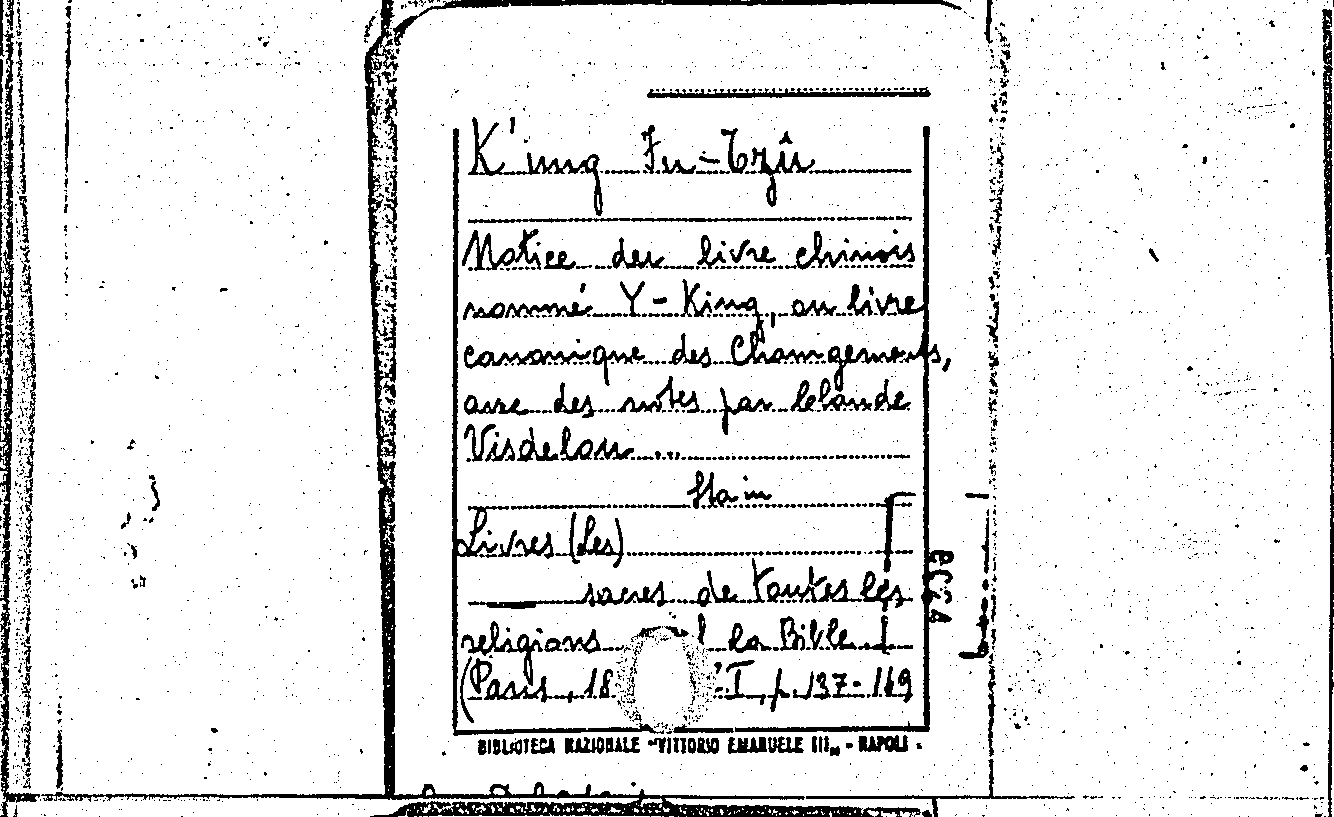 K'ung Fu-Tzŭ
Notice du livre chinois
nommé Y-King, ou livre
canonique des Changements,
avec des notes par Claude
Visdelou ...
Sta in
Livres (Les)
—— sacrés de toutes les
religions l la Bible
(Paris, 18 I, p. 137-169
BIBLIOTECA NAZIONALE "VITTORIO EMANUELE III" - NAPOLI